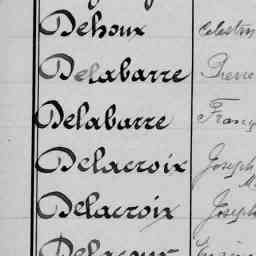 Dehoux Celestin
Delabarre Pierre
Delabarre
Delacroix Joseph
Delacroix Joseph
Delacour